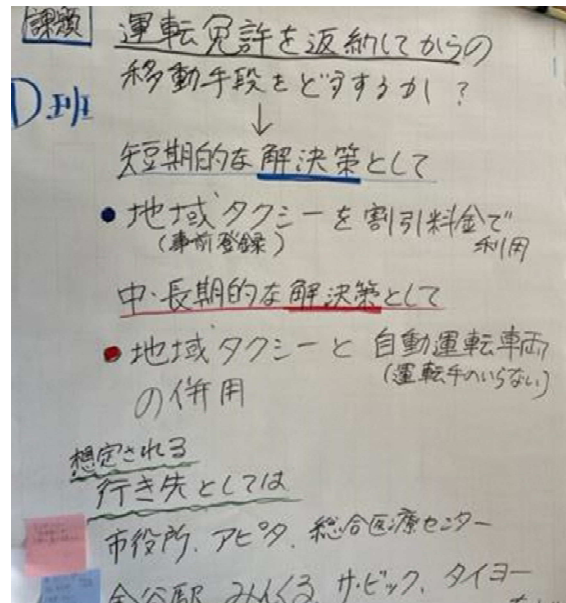 課題 運転免許を返納してからの
移動手段をどうするか？
D班
↓
短期的な解決策として
• 地域タクシーを割引料金で
(事前登録) 利用
中・長期的な解決策として
• 地域タクシーと自動運転車両
(運転手のいらない)
の併用
想定される
行き先としては
市役所、アピタ、総合医療センター
みんくる、サ・ビック、タイヨー